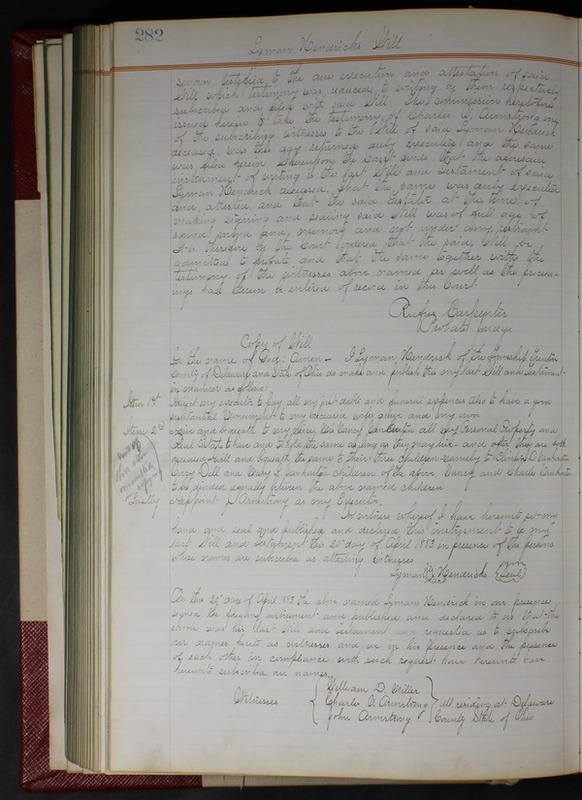 282
Lyman Hendricks Will
sworn testified to the due execution and attestation of said
Will which testimony was reduced to writing by them respectively
subscribed and filed with said Will. The Commission heretofore
issued herein to take the testimony of Charles O. Armstrong one
of the subscribing witnesses to the Will of said Lyman Hendrick
deceased was this day returned duly executed and the same
was filed herein. Whereupon the Court finds that the aforesaid
instrument of writing is the last Will and testament of said
Lyman Hendrick deceased, that the same was duly executed
and attested and that the said testator at the time of
making signing and sealing said Will was of full age of
sound mind and memory and not under any restraint
It is therefore by the Court ordered that the said Will be
admitted to probate and that the same together with the
testimony of the witnesses above named as well as the proceed-
ings had herein be entered of record in this Court.
Rufus Carpenter
Probate Judge
Copy of Will
In the name of God: Amen - I Lyman Hendrick of the Township
County of Delaware and State of Ohio do make and publish this my last Will and testament
in manner as follows:
Item 1st I direct my executor to pay all my just debts and funeral expences also to have a good
substantial Monument to my deceased wife grave and my own
Item 2d I give and bequeath to my niece Nancy Vankerton all my Personal Property and
Real Estate to have and to hold the same as long as they may live - and after they are both
deceased I will and bequeath the same to their three children namely
Dill and Vankerton children of the above Nancy and Charles Vankerton
to be divided equally between the above named children
& Lastly I appoint J Armstrong as my Executor
In witness whereof I have hereunto set my
hand and seal and published and declared this instrument to be my
last Will and testament this 20" day of April 1883 in presence of the persons
whose names are subscribed as attesting witnesses
Lyman his mark Hendricks Seal
On this 20" day of April 1883 the above named Lyman Hendrick in our presence
signed the foregoing instrument and published and declared to us that the
same was his last Will and testament and requested us to subscribe
our names hereto as witnesses and we in his presence and the presence
of each other in compliance with such request have hereunto have
hereunto subscribed our names
Witnesses
William D. Miller
Charles O. Armstrong
John Armstrong
All residing at Delaware
County State of Ohio